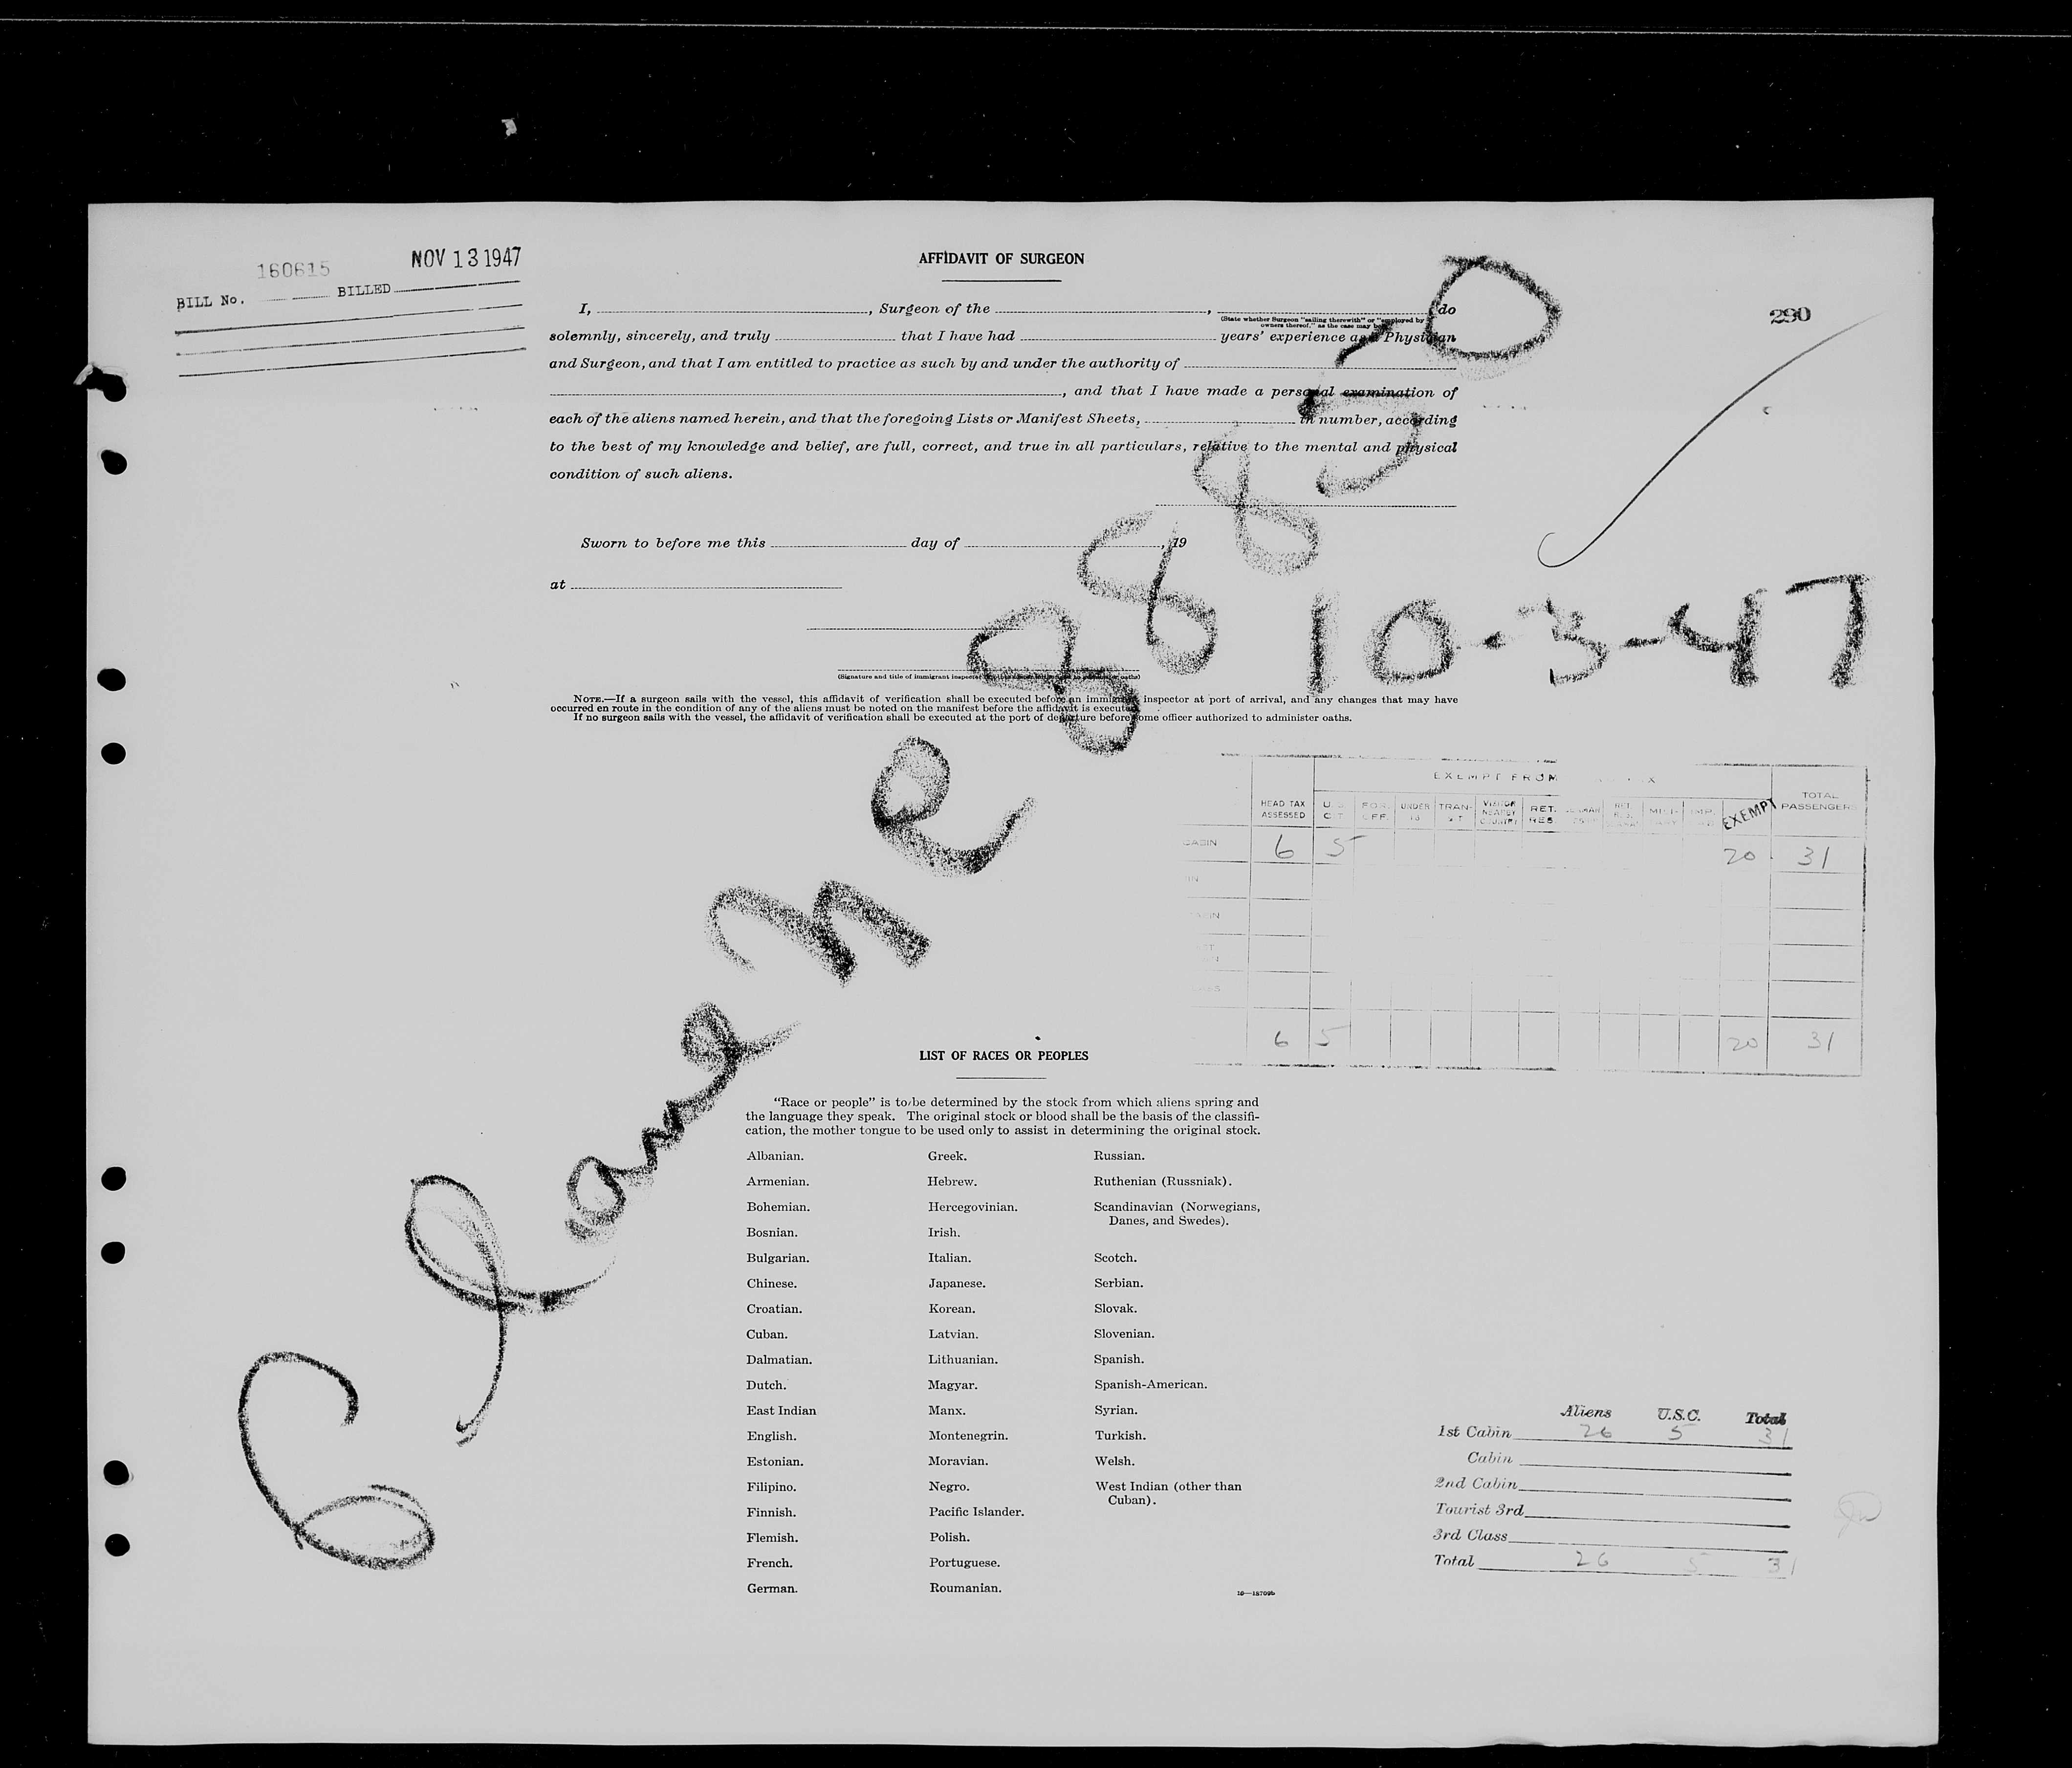 160615 NOV 13 1947
BILL No. BILLED
AFFIDAVIT OF SURGEON
290
I, , Surgeon of the , , do
(State whether Surgeon "sailing therewith" or "employed by
owners thereof," as the case may be
solemnly, sincerely, and truly that I have had years' experience as a Physician
and Surgeon, and that I am entitled to practice as such by and under the authority of
, and that I have made a personal examination of
each of the aliens named herein, and that the foregoing Lists or Manifest Sheets, in number, according
to the best of my knowledge and belief, are full, correct, and true in all particulars, relative to the mental and physical
condition of such aliens.
Sworn to before me this day of , 19
at
10-3-47
(Signature and title of immigrant inspector oaths)
NOTE.—If a surgeon sails with the vessel, this affidavit of verification shall be executed before an immigrant inspector at port of arrival, and any changes that may have
occurred en route in the condition of any of the aliens must be noted on the manifest before the affidavit is executed.
If no surgeon sails with the vessel, the affidavit of verification shall be executed at the port of departure before some officer authorized to administer oaths.
EXEMPT FROM
HEAD TAX ASSESSED U.S. CIT FOR. OFF. UNDER 16 TRANSIT VISITOR NEARBY COUNTRY RET. RES. EXEMPT TOTAL PASSENGERS
CABIN 6 5 20 31
6 5 20 31
LIST OF RACES OR PEOPLES
"Race or people" is to be determined by the stock from which aliens spring and
the language they speak. The original stock or blood shall be the basis of the classifi-
cation, the mother tongue to be used only to assist in determining the original stock.
Albanian. Greek. Russian.
Armenian. Hebrew. Ruthenian (Russniak).
Bohemian. Hercegovinian. Scandinavian (Norwegians,
Danes, and Swedes).
Bosnian. Irish.
Bulgarian. Italian. Scotch.
Chinese. Japanese. Serbian.
Croatian. Korean. Slovak.
Cuban. Latvian. Slovenian.
Dalmatian. Lithuanian. Spanish.
Dutch. Magyar. Spanish-American.
East Indian Manx. Syrian.
English. Montenegrin. Turkish.
Estonian. Moravian. Welsh.
Filipino. Negro. West Indian (other than
Cuban).
Finnish. Pacific Islander.
Flemish. Polish.
French. Portuguese.
German. Roumanian.
16—18709b
Aliens U.S.C. Total
1st Cabin 26 5 31
Cabin
2nd Cabin
Tourist 3rd
3rd Class
Total 26 5 31